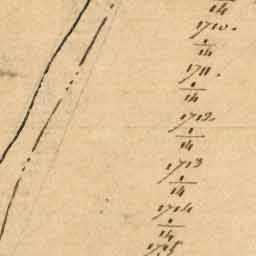 1/14
1710.
1/14
1711.
1/14
1712.
1/14
1713
1/14
1714
1/14
1715